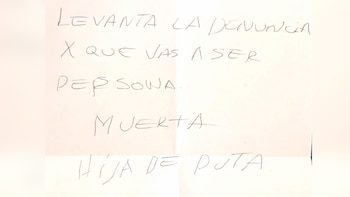 LEVANTA LA DENUNCIA
X QUE VAS A SER
PERSONA
MUERTA
HIJA DE PUTA